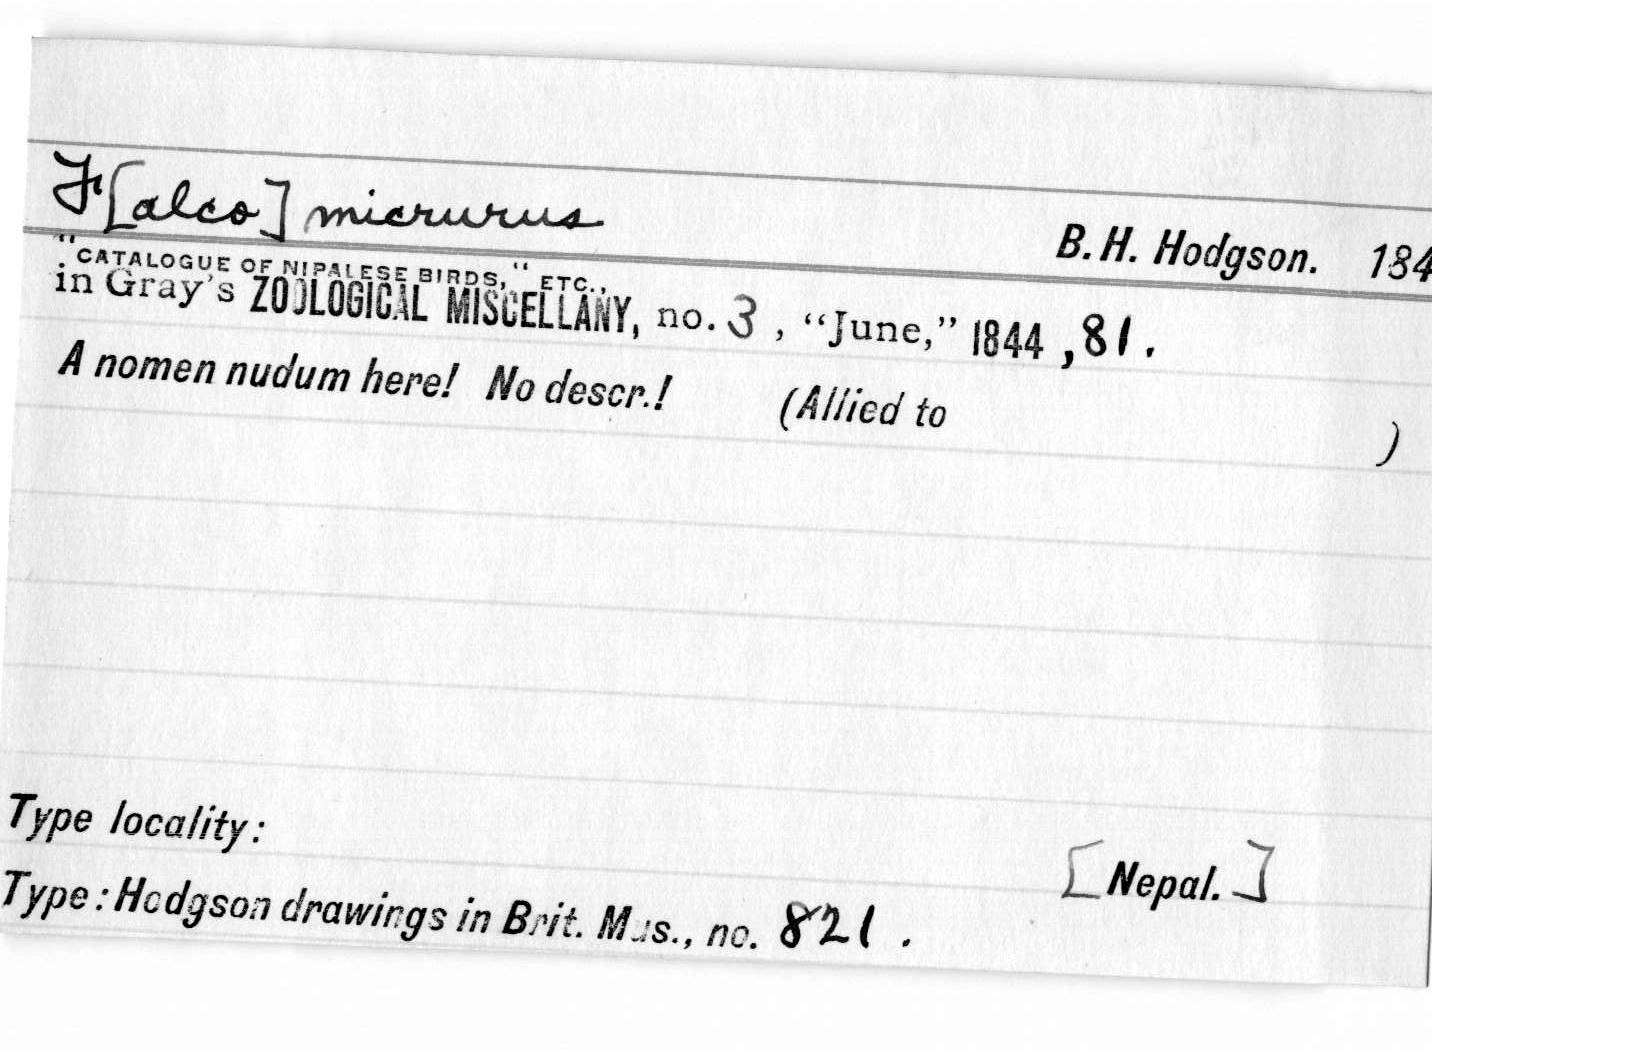 F[alco] micrurus
B. H. Hodgson. 184
"CATALOGUE OF NIPALESE BIRDS," ETC.,
in Gray's ZOOLOGICAL MISCELLANY, no. 3, "June," 1844, 81.
A nomen nudum here! No descr.! (Allied to )
Type locality: [Nepal.]
Type: Hodgson drawings in Brit. Mus., no. 821.